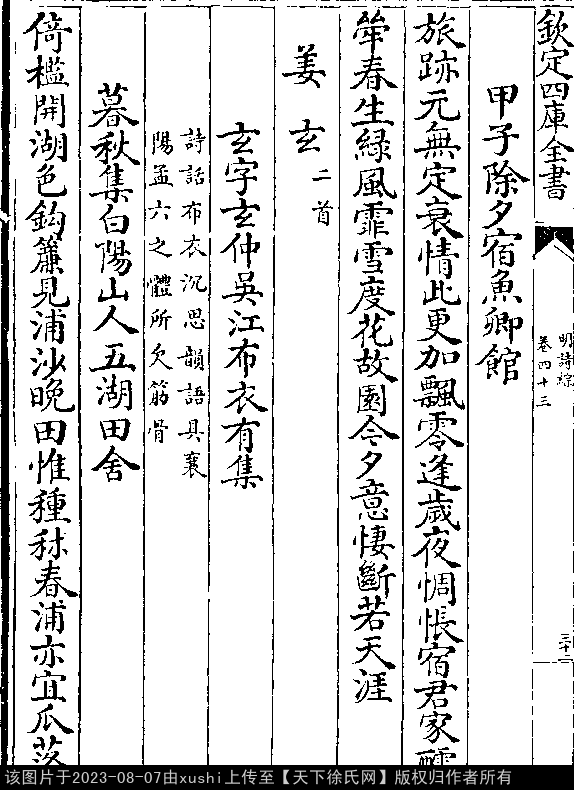 欽定四庫全書
明詩綜
卷四十三
甲子除夕宿魚卿館
旅跡元無定衰情此更加飄零逢歲夜惆悵宿君家
犖春生綠風霏雪度花故園今夕意悽斷若天涯
姜玄二首
玄字玄仲吳江布衣有集
詩話布衣沉思韻語具襄
陽孟六之體所欠筋骨
暮秋集白陽山人五湖田舍
倚檻開湖色鈎簾見浦沙晚田惟種秫春浦亦宜瓜落
该图片于2023-08-07由xushi上传至【天下徐氏网】版权归作者所有